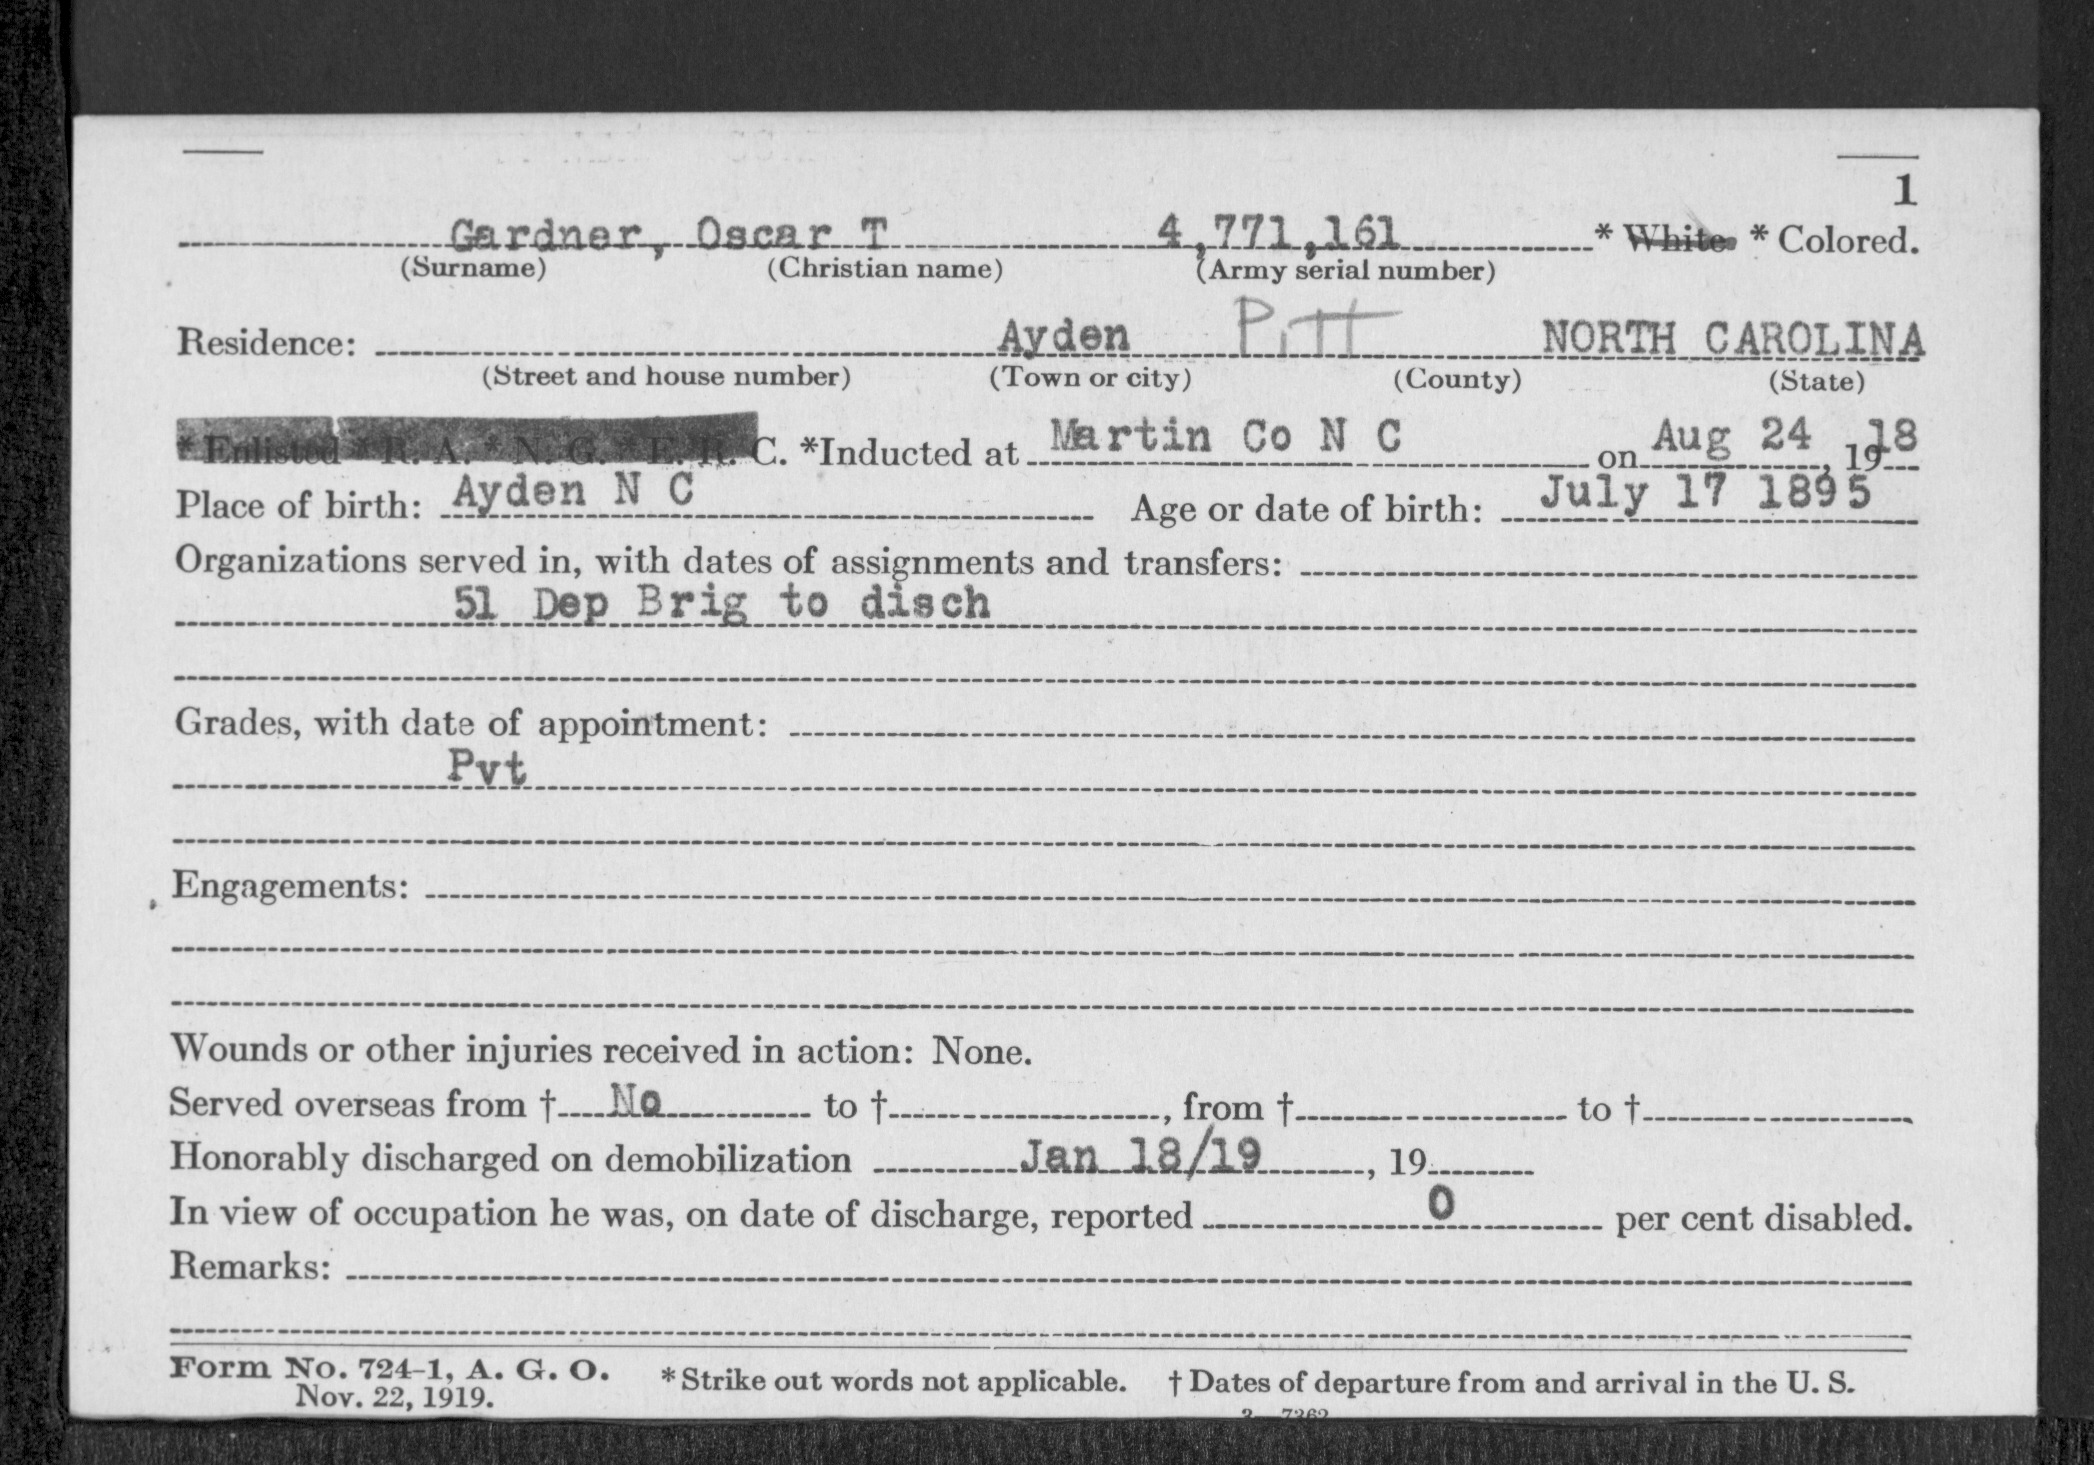 1
Gardner, Oscar T 4,771,161 * White * Colored.
(Surname) (Christian name) (Army serial number)
Residence: Ayden Pitt NORTH CAROLINA
(Street and house number) (Town or city) (County) (State)
* Enlisted * R. A. * N. G. * E. R. C. *Inducted at Martin Co N C on Aug 24, 1918
Place of birth: Ayden N C Age or date of birth: July 17 1895
Organizations served in, with dates of assignments and transfers:
51 Dep Brig to disch
Grades, with date of appointment:
Pvt
Engagements:
Wounds or other injuries received in action: None.
Served overseas from † No to †, from † to †
Honorably discharged on demobilization Jan 18/19, 19
In view of occupation he was, on date of discharge, reported 0 per cent disabled.
Remarks:
Form No. 724-1, A. G. O. *Strike out words not applicable. † Dates of departure from and arrival in the U. S.
Nov. 22, 1919.